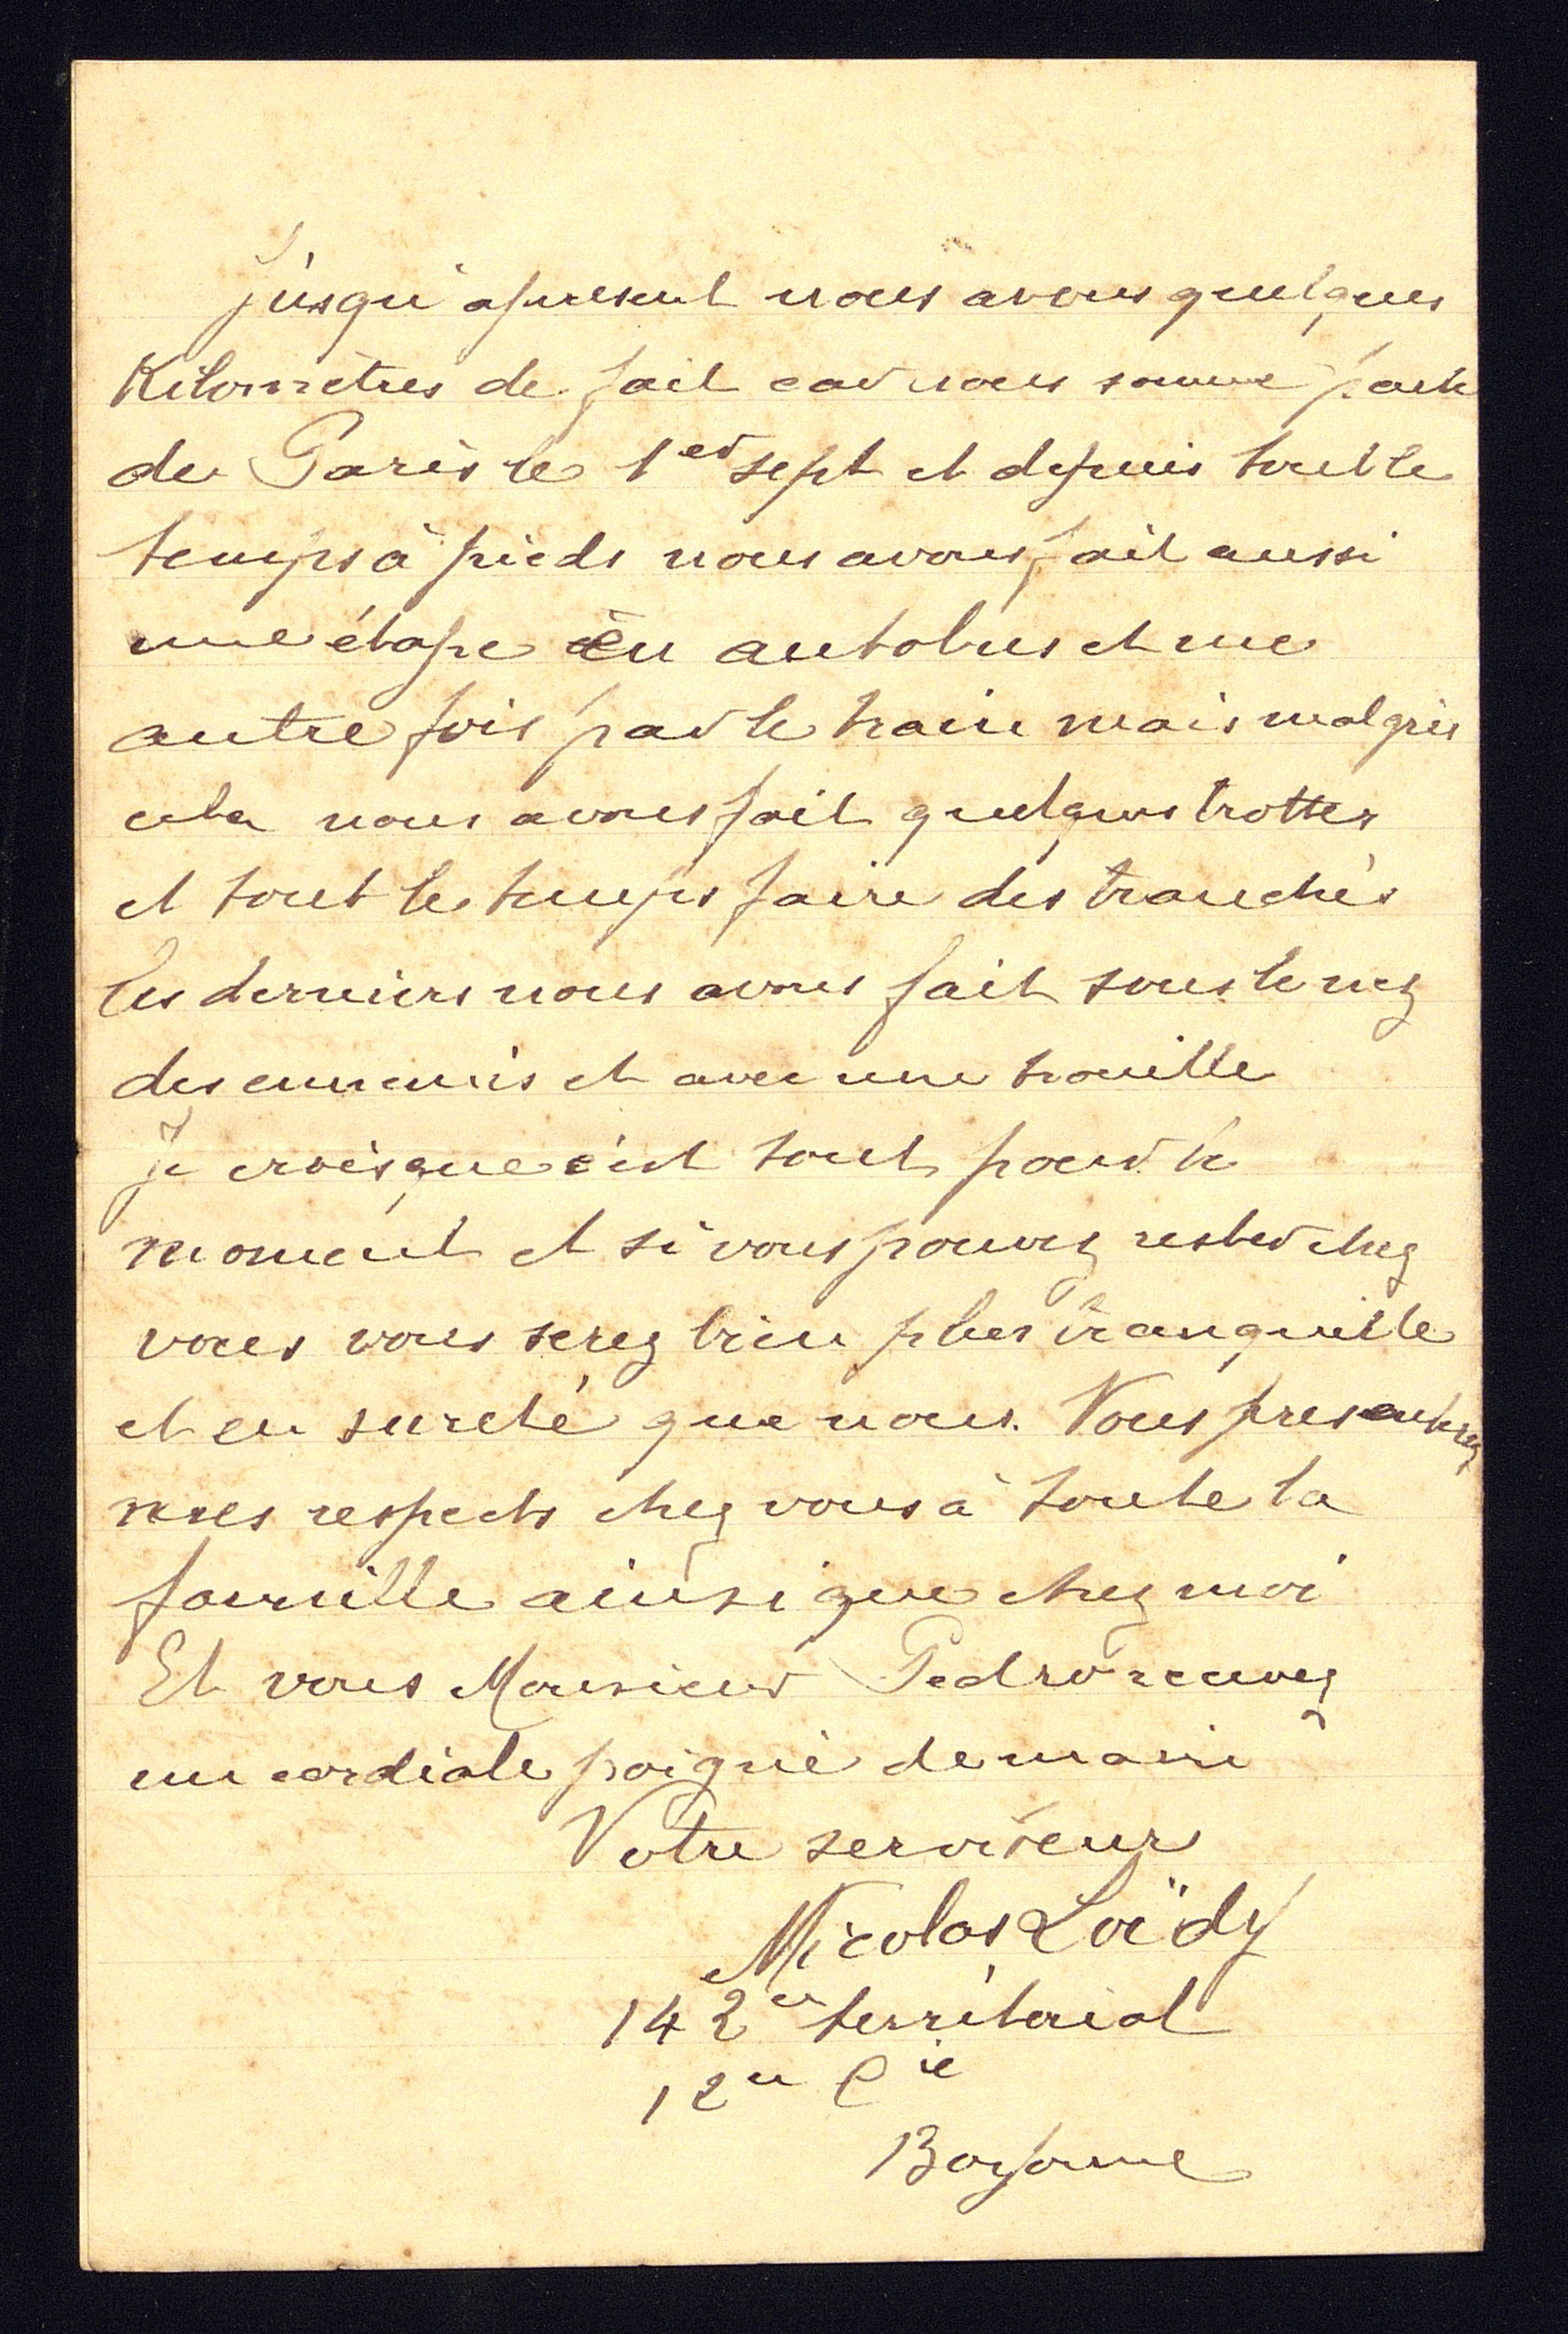 Jusqu'apresent nous avons quelques
Kilomètres de fait car nous somme parti
de Paris le 1er sept et depuis tout le
temps à pieds nous avons fait aussi
une étape en autobus et une
autre fois par le train mais malgrès
cela nous avons fait quelques trottes
et tout le temps faire des tranchès
les derniers nous avons fait sous le nez
des ennemis et avec une trouille
je crois que c'est tout pour le
moment et si vous pouvez rester chez
vous vous serez bien plus tranquille
et en sureté que nous. Vous presenterez
mes respects chez vous à toute la
famille ainsi que chez moi
Et vous Monsieur Pedro recevez
un cordiale poignè de main
Votre serviteur
Nicolas Loïdy
142e territorial
12e Cie
Bayonne